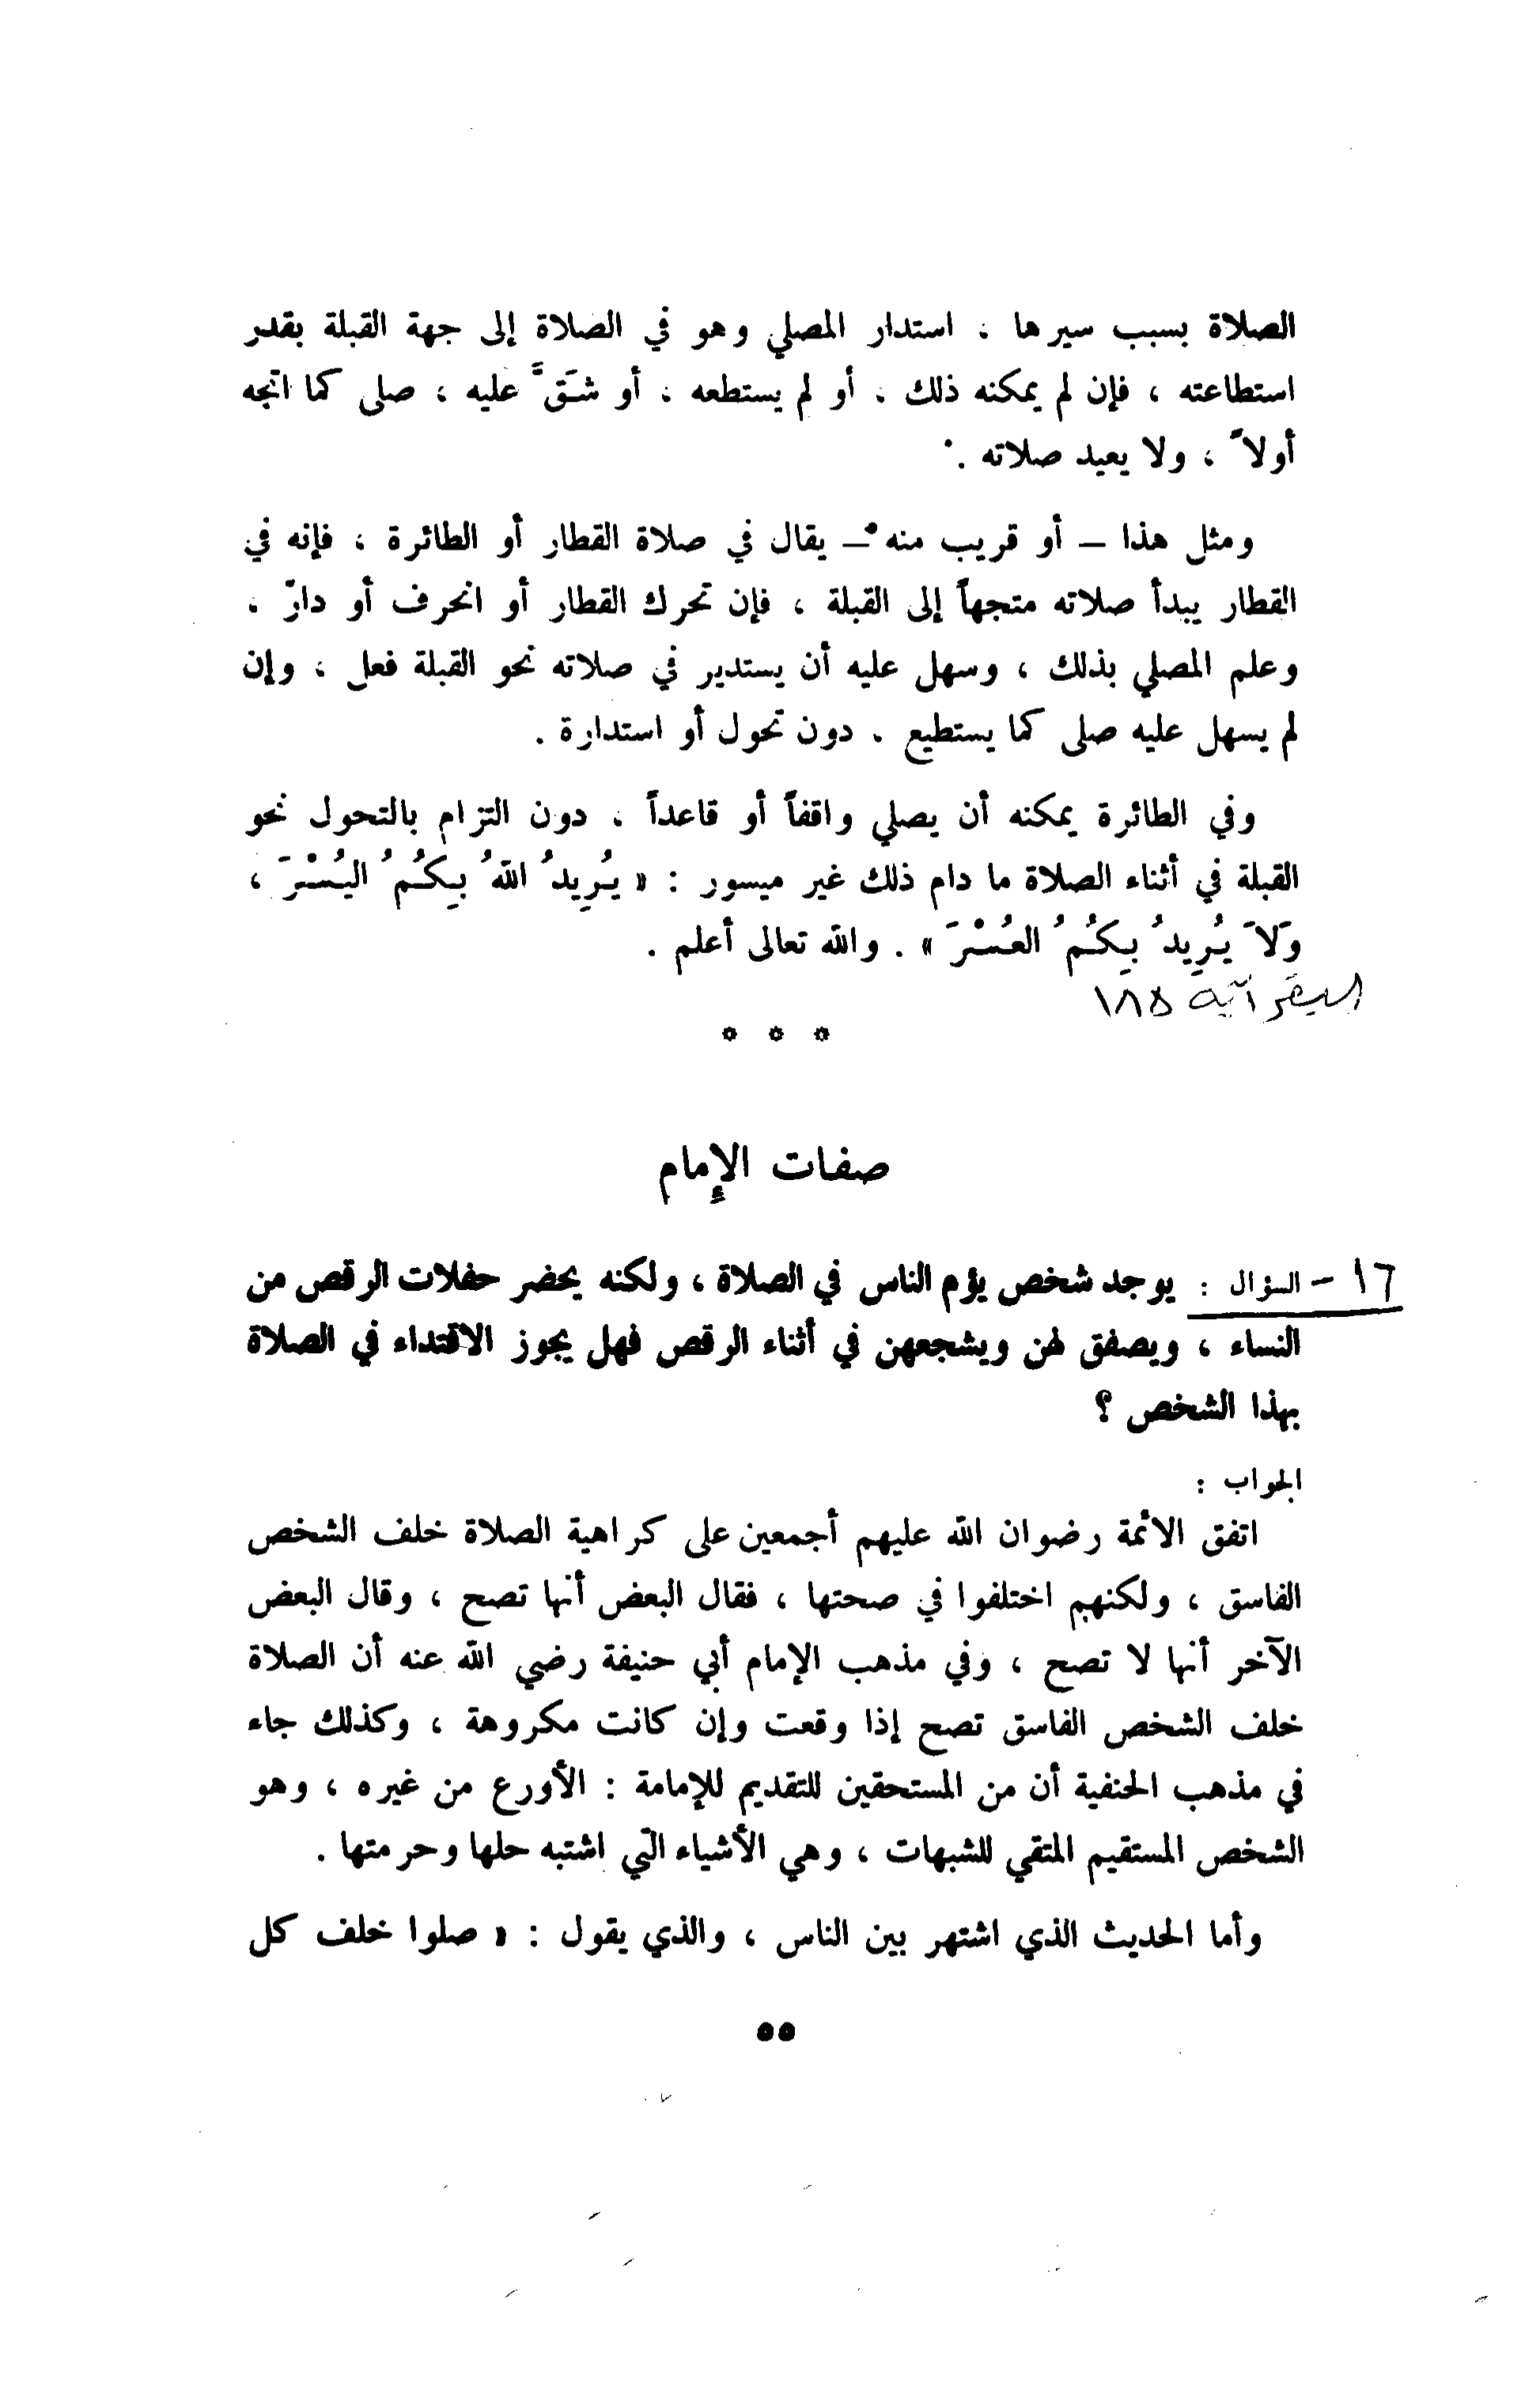 الصلاة بسبب سيرها ، استدار المصلي وهو في الصلاة إلى جهة القبلة بقدر
استطاعته ، فإن لم يمكنه ذلك ، أو لم يستطعه ، أو شَقَّ عليه ، صلى كما اتجه
أولاً ، ولا يعيد صلاته .
ومثل هذا – أو قريب منه – يقال في صلاة القطار أو الطائرة ، فإنه في
القطار يبدأ صلاته متجهاً إلى القبلة ، فإن تحرك القطار أو انحرف أو دار ،
وعلم المصلي بذلك ، وسهل عليه أن يستدير في صلاته نحو القبلة فعل ، وإن
لم يسهل عليه صلى كما يستطيع ، دون تحول أو استدارة .
وفي الطائرة يمكنه أن يصلي واقفاً أو قاعداً ، دون التزام بالتحول نحو
القبلة في أثناء الصلاة ما دام ذلك غير ميسور : « يُرِيدُ اللهُ بِكُمُ اليُسْرَ ،
وَلاَ يُرِيدُ بِكُمُ العُسْرَ » . والله تعالى أعلم .
البقر آية ١٨٥
* * *
صفات الإمام
١٦ – السؤال : يوجد شخص يؤم الناس في الصلاة ، ولكنه يحضر حفلات الرقص من
النساء ، ويصفق لهن ويشجعهن في أثناء الرقص فهل يجوز الاقتداء في الصلاة
بهذا الشخص ؟
الجواب :
اتفق الأئمة رضوان الله عليهم أجمعين على كراهية الصلاة خلف الشخص
الفاسق ، ولكنهم اختلفوا في صحتها ، فقال البعض أنها تصح ، وقال البعض
الآخر أنها لا تصح ، وفي مذهب الإمام أبي حنيفة رضي الله عنه أن الصلاة
خلف الشخص الفاسق تصح إذا وقعت وإن كانت مكروهة ، وكذلك جاء
في مذهب الحنفية أن من المستحقين للتقديم للإمامة : الأورع من غيره ، وهو
الشخص المستقيم المتقي للشبهات ، وهي الأشياء التي اشتبه حلها وحرمتها .
وأما الحديث الذي اشتهر بين الناس ، والذي يقول : « صلوا خلف كل
٥٥